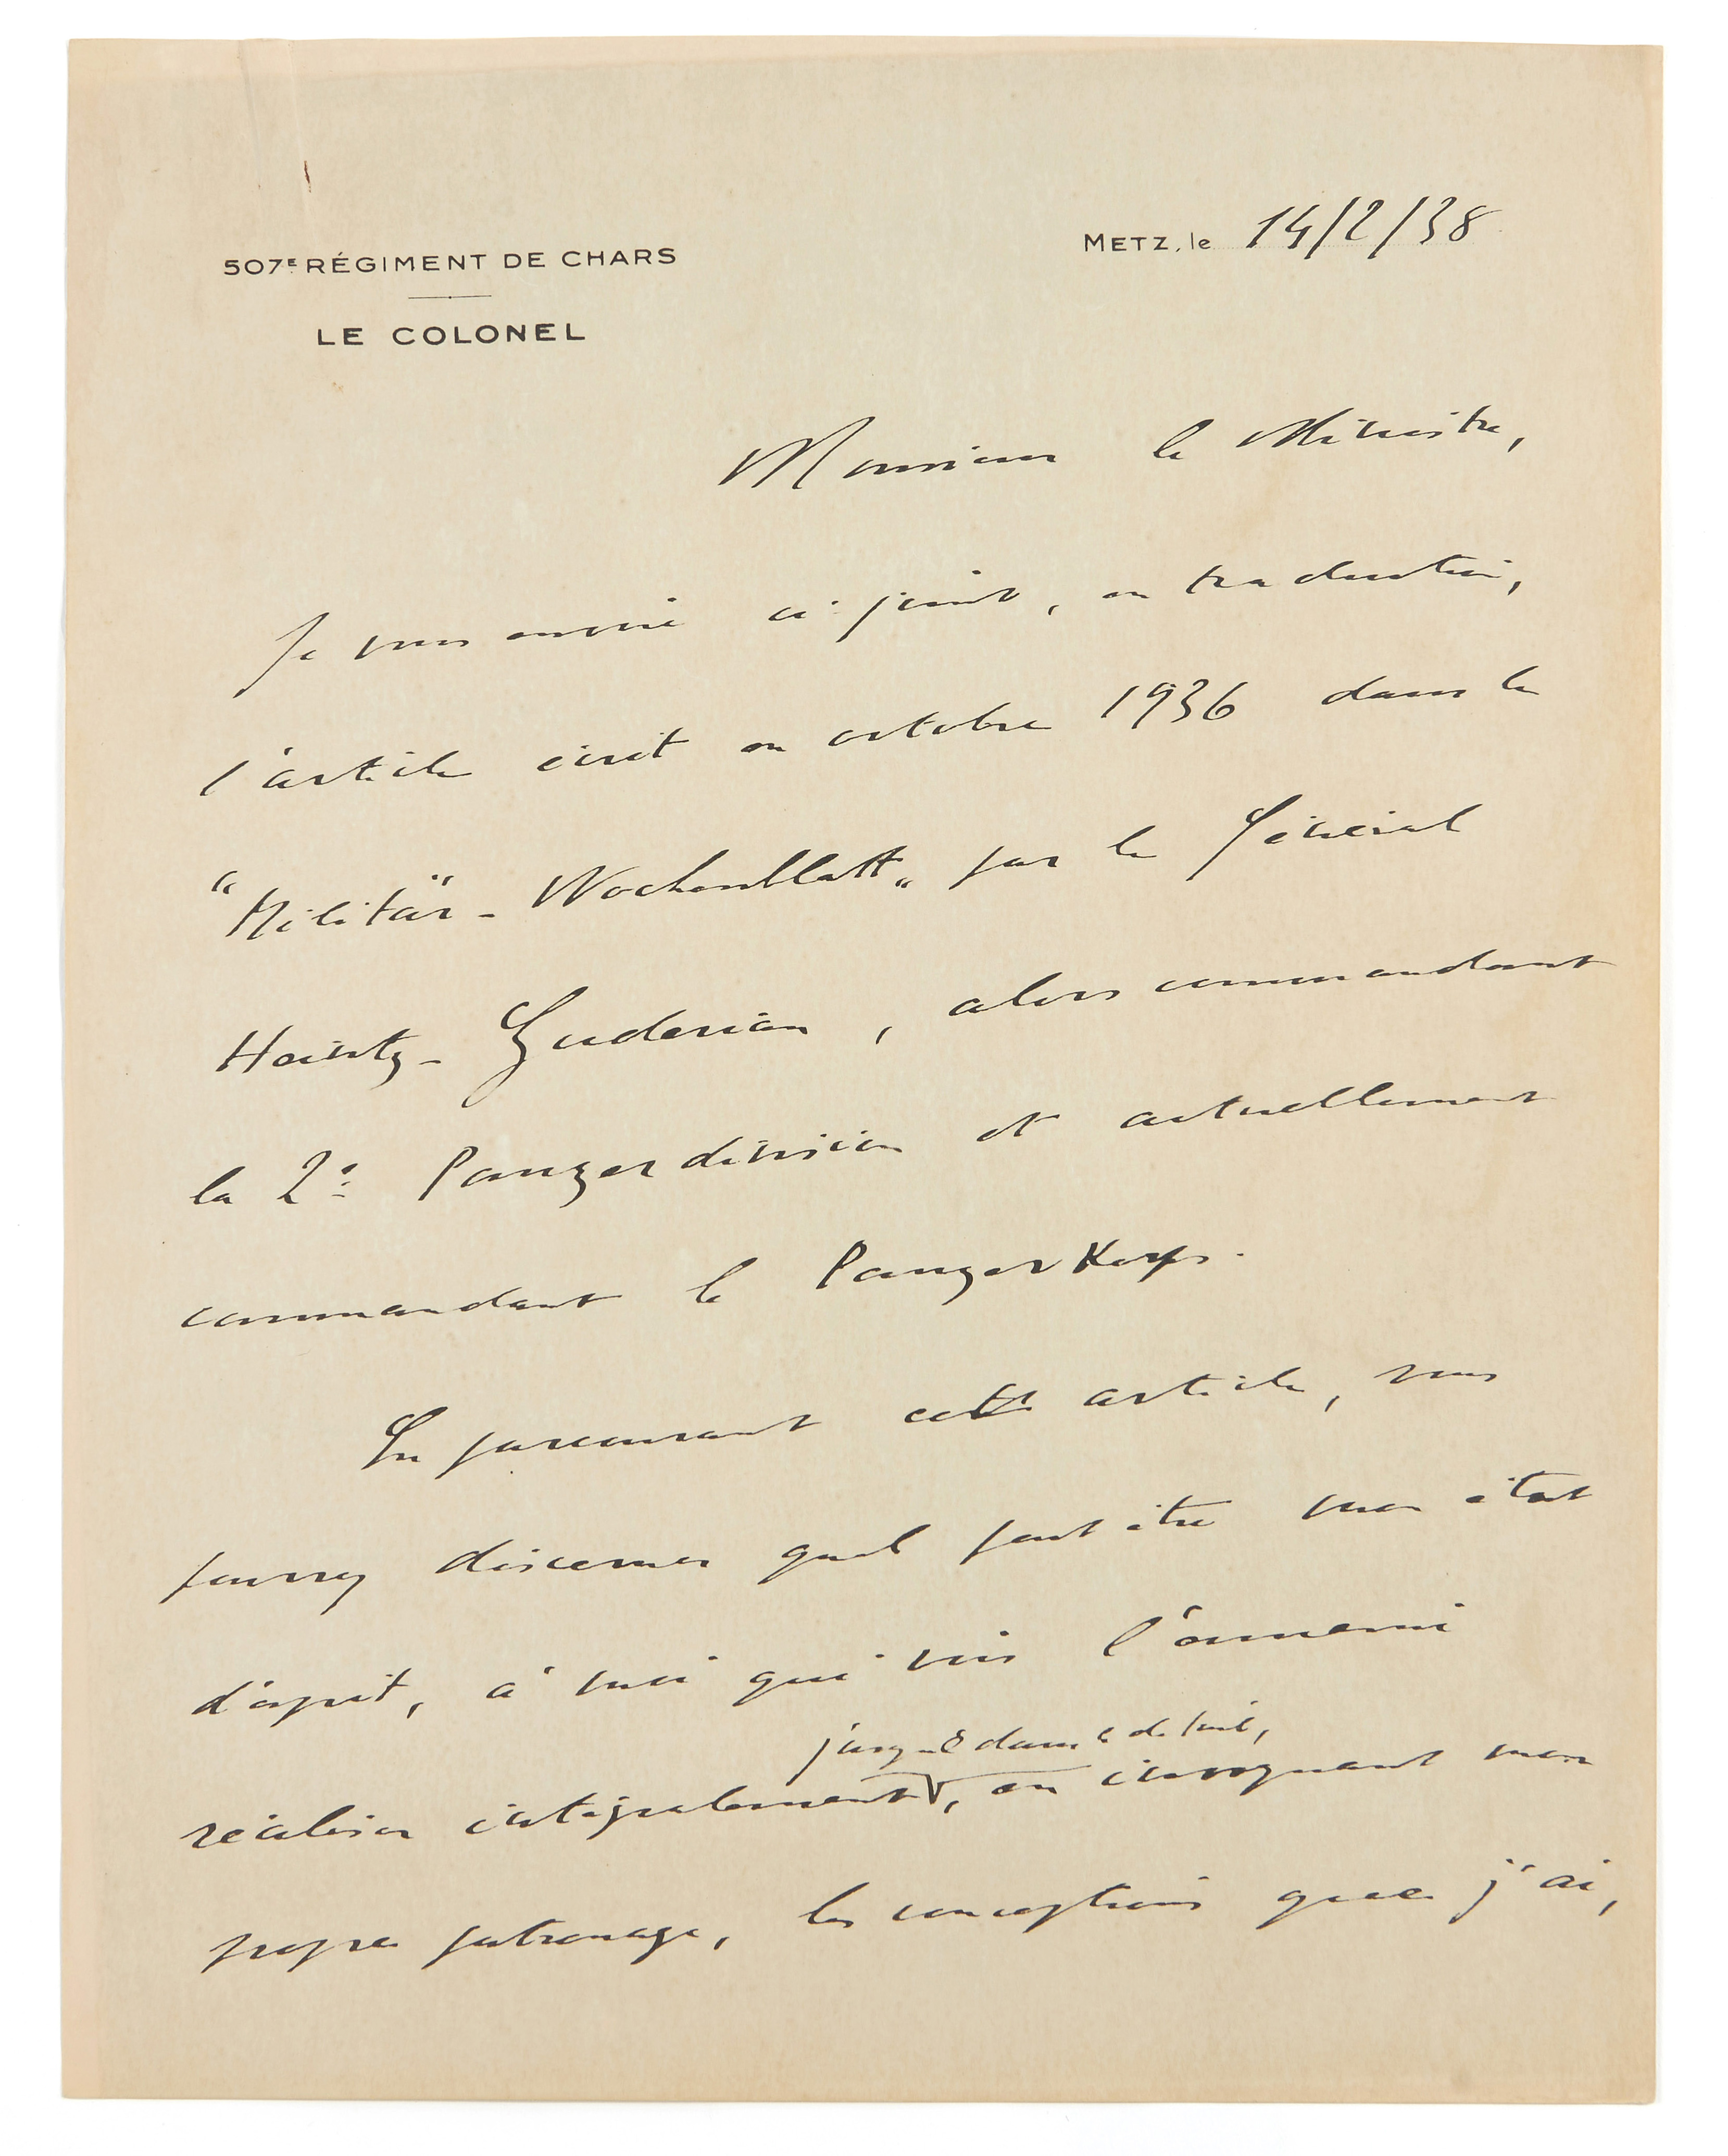 507E RÉGIMENT DE CHARS
LE COLONEL
METZ, le 14/2/38
Monsieur le Ministre,
Je vous envoie ci-joint, en traduction,
l'article écrit en octobre 1936 dans le
"Militär-Wochenblatt„ par le Général
Heintz-Guderian, alors commandant
la 2e Panzerdivision et actuellement
commandant le PanzerKorps.
En parcourant cet article, vous
pourrez discerner quel peut être mon état
d'esprit, à moi qui vois l'ennemi
jusque dans le détail,
réaliser intégralement, en invoquant mon
propre patronage, les conceptions que j'ai,